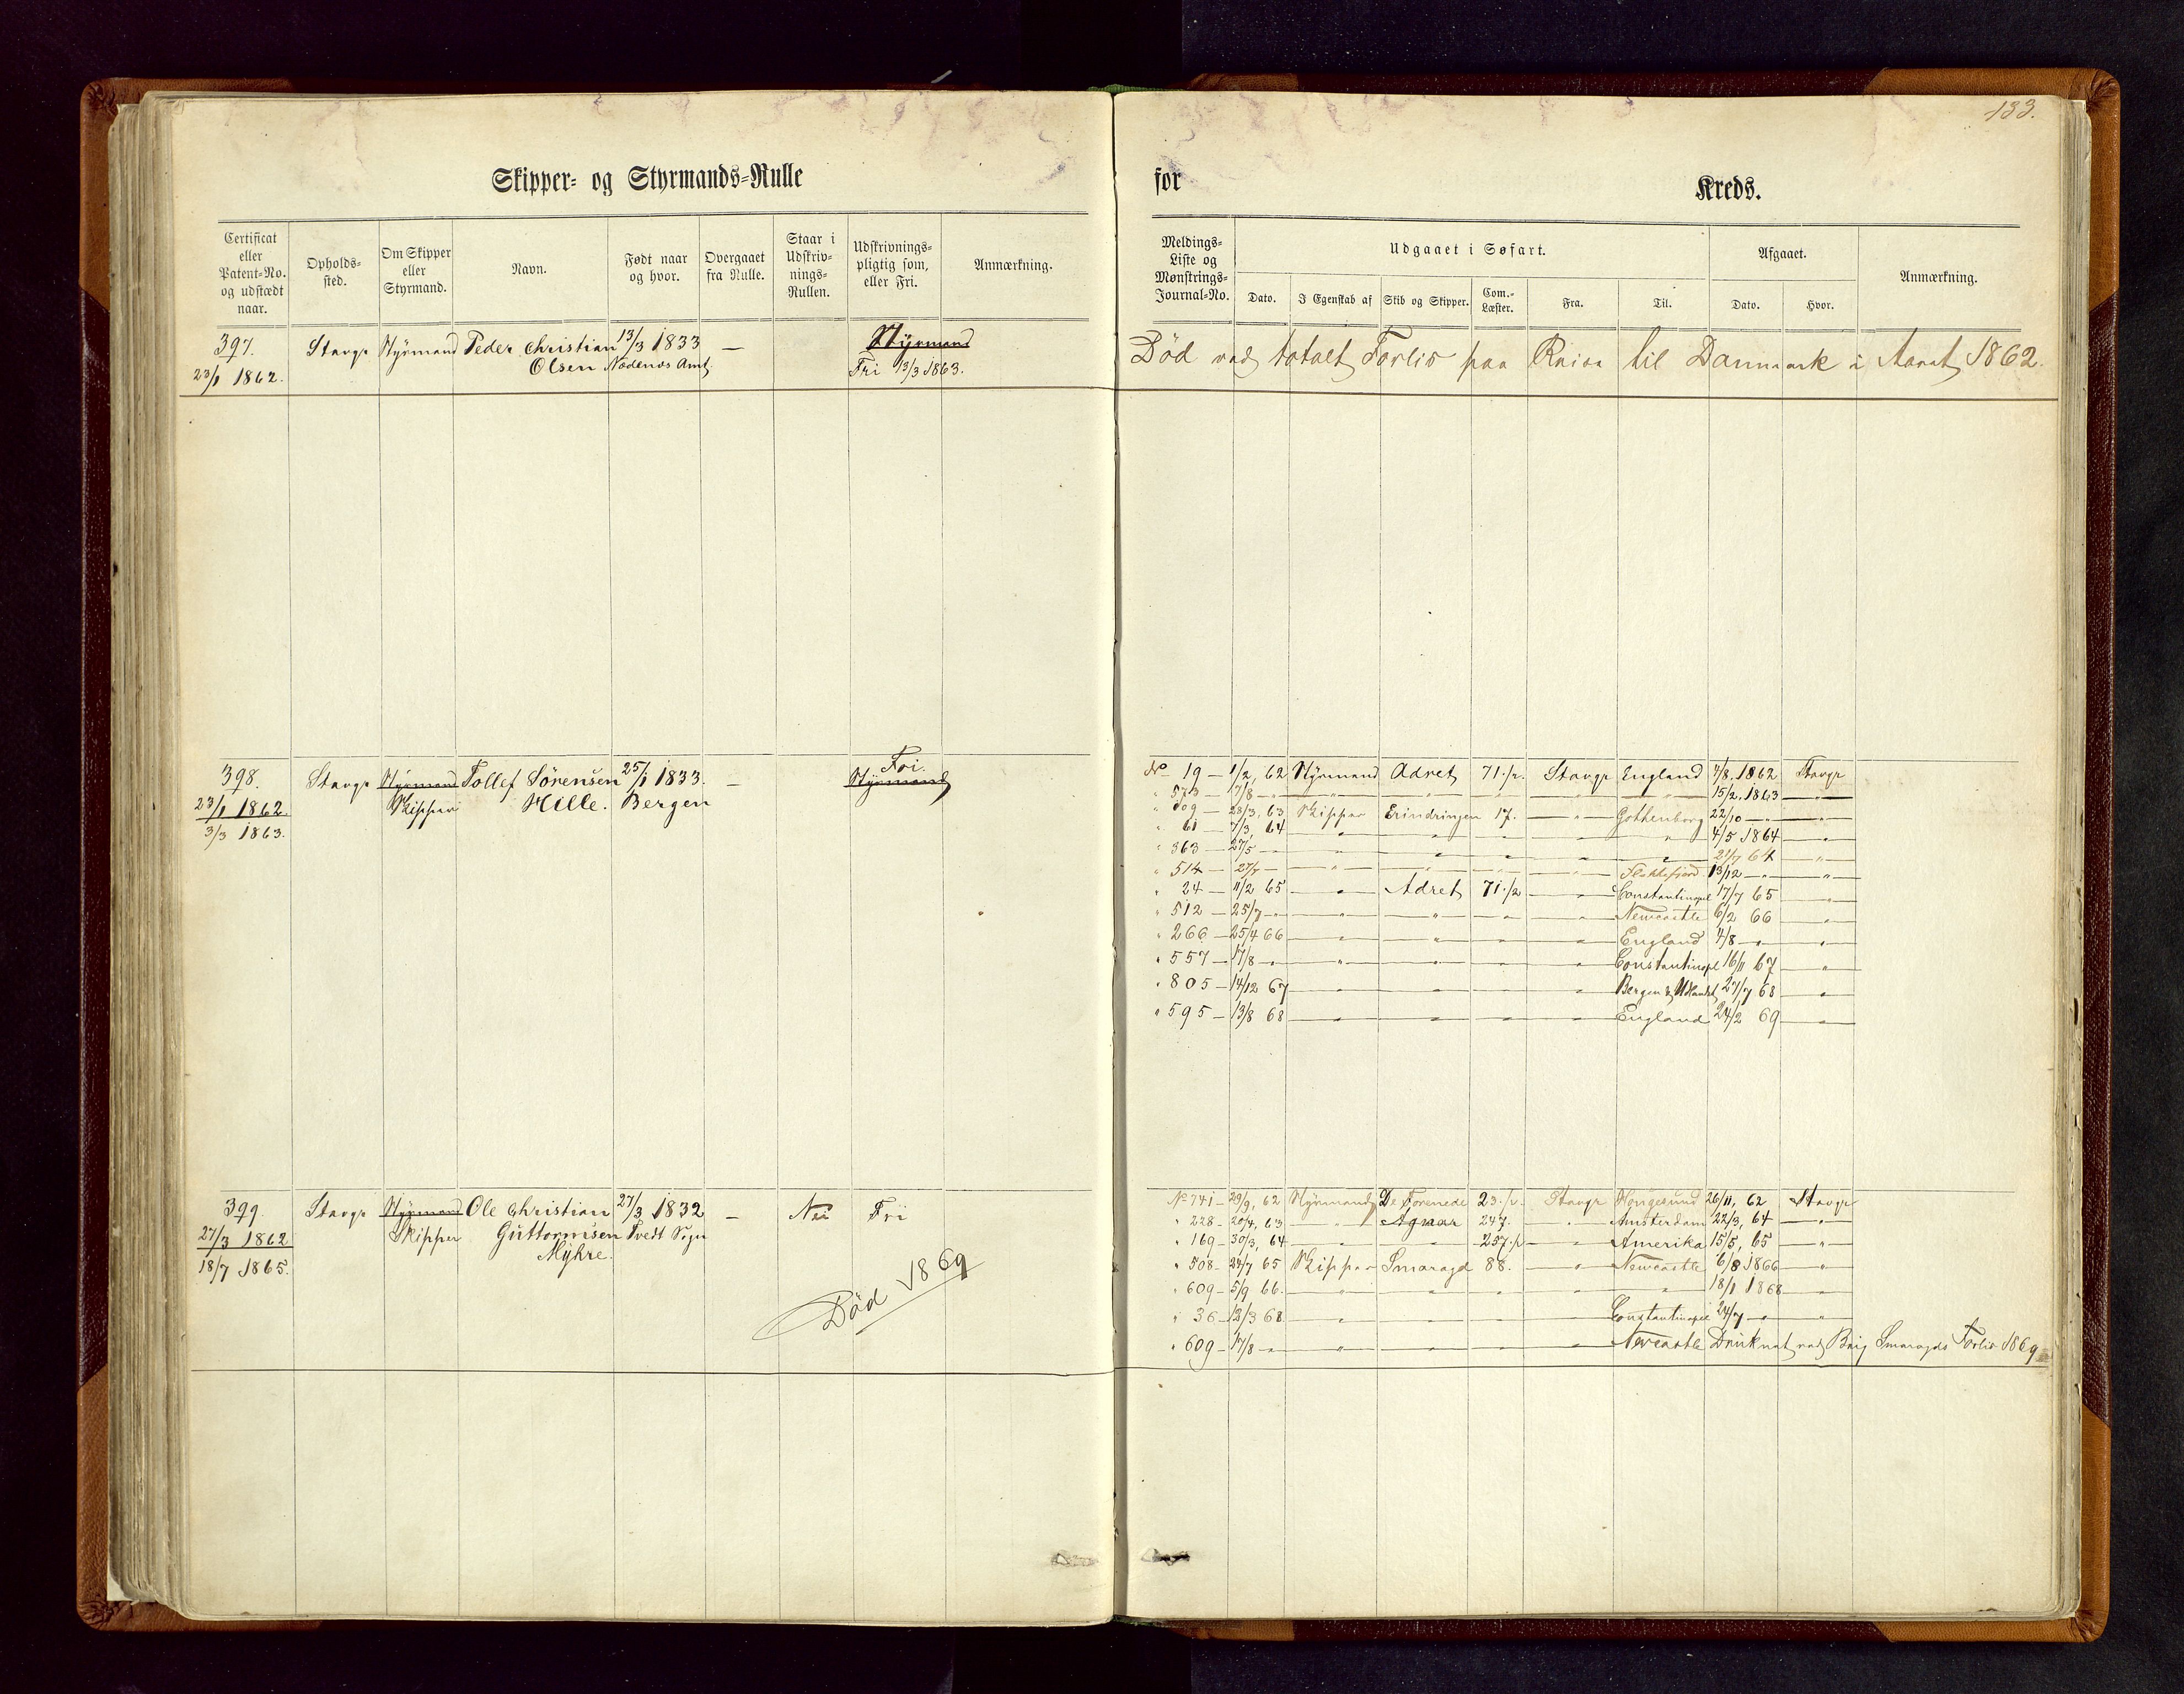 133.
Skipper- og Styrmands-Rulle
for Kreds.
Certificat eller Patent-No. og udstædt naar. Opholds-sted. Om Skipper eller Styrmand. Navn. Født naar og hvor. Overgaaet fra Rulle. Staar i Udskriv-nings-Rullen. Udskrivnings-pligtig som, eller Fri. Anmærkning.
Meldings-Liste og Mønstrings-Journal-No. Udgaaet i Søfart. Afgaaet. Anmærkning.
Dato. I Egenskab af Skib og Skipper. Com.-Læster. Fra. Til. Dato. Hvor.
397. Stavgr Styrmand Peder Christian 13/3 1833 — Styrmand
23/1 1862. Olsen Nedenæs Amt. Fri 13/3 1863.
Død ved totalt Forlis paa Reise til Danmark i Aaret 1862.
398. Stavgr Styrmand Tollef Sörensen 25/1 1833. — Fri.
Styrmand
23/1 1862. Skipper Hille. Bergen
3/3 1863.
No 19 — 1/2, 62 Styrmand Adret 71 1/2. Stavgr England 4/8. 1862 Stavgr
" 573 — 17/8 — " — " " " — " — " 15/2, 1863 — " —
" 209 — 28/3, 63 Skipper Erindringen 17. — " — Gothenborg 22/10 — " — "
" 61 — 7/3, 64 " " " " " 4/5 1864 — "
" 363 — 27/5 — " " " " " " 21/7 64 — "
" 514 — 27/7 — " " " " " Flekkefjord 13/12 — " — "
" 24 — 11/2 65 — " Adret 71 1/2 — " Constantinopel 17/7 65 "
" 512 — 25/7 — " " " " " Newcastle 6/2 66 "
" 266 — 25/4 66 " " " " England 4/8 — " "
" 557 — 17/8 — " " " " " Constantinopel 16/11 67 "
" 805 — 14/12 67 " " " " Bergen & Udlandet 27/7 68 "
" 595 — 13/8 68 " " " " England 24/2 69 "
399. Stavgr Styrmand Ole Christian 27/3 1832 — Nei Fri
27/3 1862 Skipper Guttormsen Tvedt Sogn
18/7 1865. Myhre.
Död 1869
No 741 — 29/9, 62 Styrmand De Forenede 23 1/2. Stavgr Haugesund 26/11, 62 Stavgr
" 228 — 20/4, 63 — " Agnar 247. — " — Amsterdam 22/3, 64 — " —
" 169 — 30/3, 64 " " 257 1/2 " Amerika 15/5, 65 — "
" 508 — 24/7 65 Skipper Smaragd 88. — " — Newcastle 6/8 1866 — "
" 609 — 5/9 66. " " " " " 18/1 1868 "
" 36 — 13/3 68 " " " " Constantinopel 24/7 — " "
" 609 — 14/8 — " " " " " Newcastle Druknet ved Brig Smaragds Forlis 1869